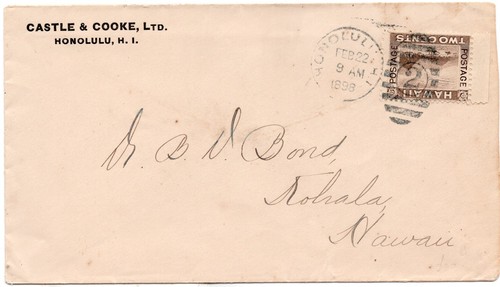 CASTLE & COOKE, LTD.
HONOLULU, H. I.
HONOLULU H. I.
FEB 22
9 AM
1898
HAWAII
POSTAGE
POSTAGE
TWO CENTS
2
Dr B. D. Bond,
Kohala,
Hawaii